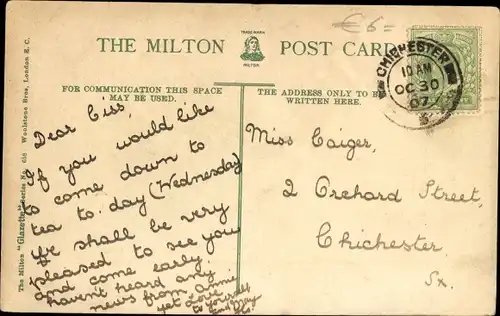 € 6=
THE MILTON POST CARD
TRADE MARK
MILTON
CHICHESTER
10 AM
OC 30
07
FOR COMMUNICATION THIS SPACE
MAY BE USED.
THE ADDRESS ONLY TO BE
WRITTEN HERE.
The Milton "Glazette" Series No. Woolstone Bros. London E. C.
Dear Ciss,
If you would like
to come down to
tea to.day (Wednesday)
We shall be very
pleased to see you
and come early.
haven't heard any
news from Annie
yet Love
to yourself
and May
Miss Caiger,
2 Orchard Street,
Chichester.
Sx.